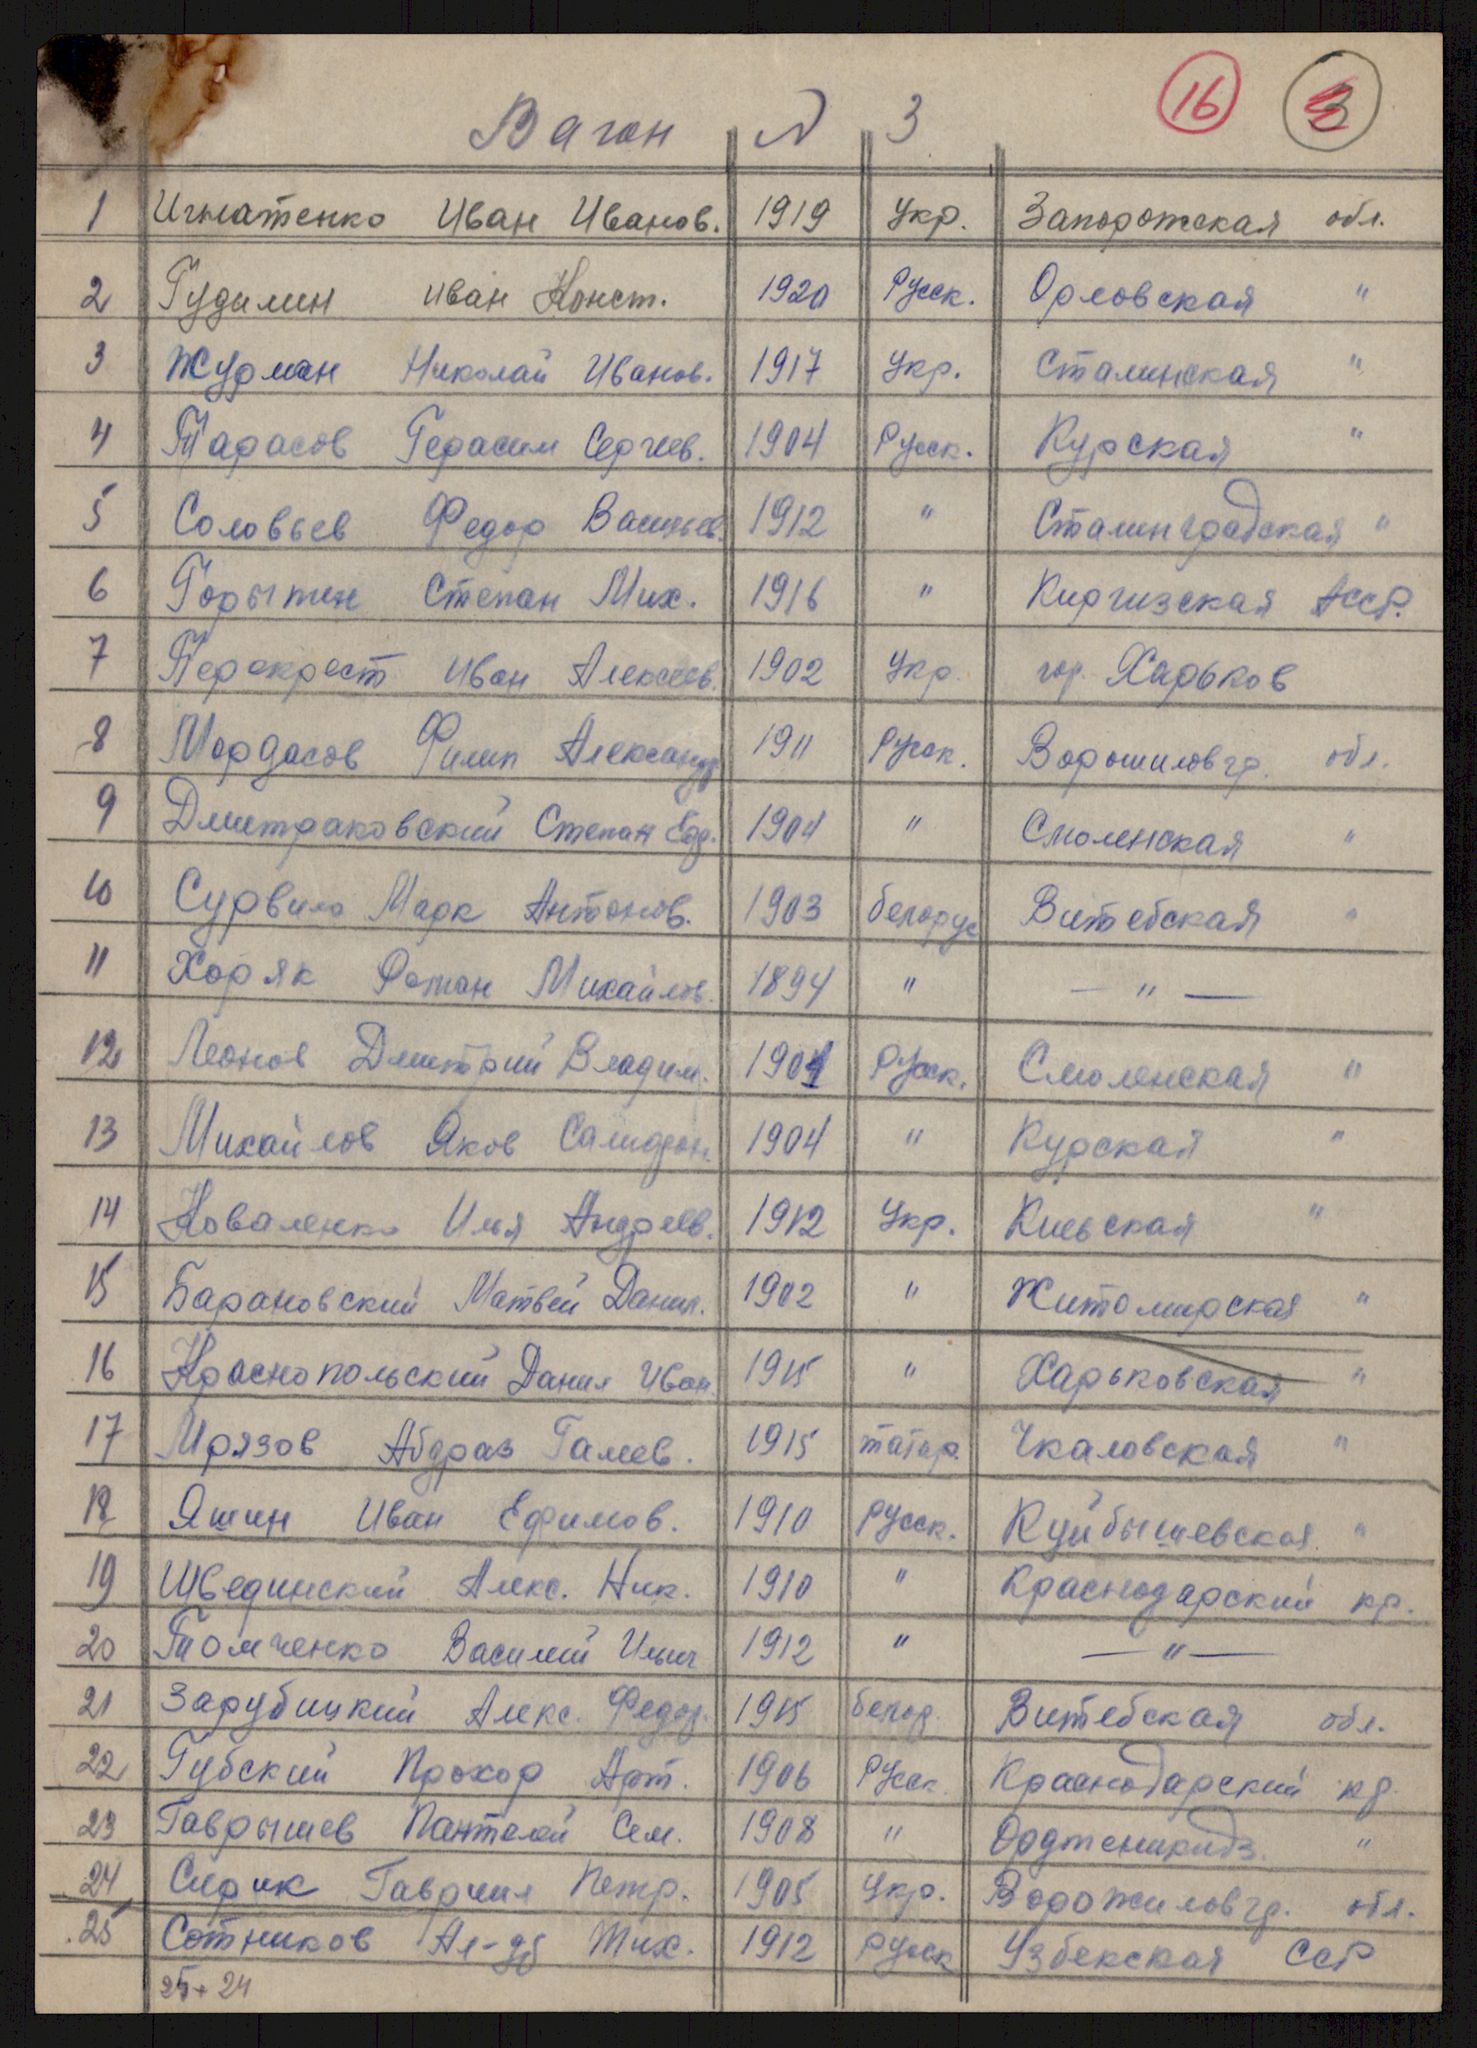 16 3
Вагон N 3
1 Игнатенко Иван Иванов. 1919 Укр. Запорожская обл.
2 Гудилин Иван Конст. 1920 Русск. Орловская "
3 Журман Николай Иванов. 1917 Укр. Сталинская "
4 Тарасов Герасим Сергеев. 1904 Русск. Курская "
5 Соловьев Федор Васильев. 1912 " Сталинградская "
6 Горыпин Степан Мих. 1916 " Киргизская АССР.
7 Перекрест Иван Алексеев. 1902 Укр. гор. Харьков
8 Мордасов Филип Александр 1911 Русск. Ворошиловгр. обл.
9 Дмитраковский Степан Егр. 1904 " Смоленская "
10 Сурвило Марк Антонов. 1903 белорус Витебская "
11 Хоряк Роман Михайлов. 1894 " — " —
12 Леонов Дмитрий Владим. 1904 Русск. Смоленская "
13 Михайлов Яков 1904 " Курская "
14 Коваленко Илья Андреев. 1912 Укр. Киевская "
15 Барановский Матвей Данил. 1902 " Житомирская "
16 Краснопольский Данил Иван. 1915 " Харьковская "
17 Мрязов Абдраз Галеев. 1915 татар. Чкаловская "
18 Яшин Иван Ефимов. 1910 Русск. Куйбышевская "
19 Щвединский Алекс. Ник. 1910 " Краснодарский кр.
20 Томченко Василий Ильич 1912 " — " —
21 Зарубицкий Алекс. Федор. 1915 белор. Витебская обл.
22 Губский Прохор Арт. 1906 Русск. Краснодарский кр.
23 Гаврышев Пантелей Сем. 1908 " Орджоникидз. "
24 Сирик Гаврил Петр. 1905 Укр. Ворожиловгр. обл.
25 Сотников Ал-др Тих. 1912 Русск Узбекская ССР
25+24